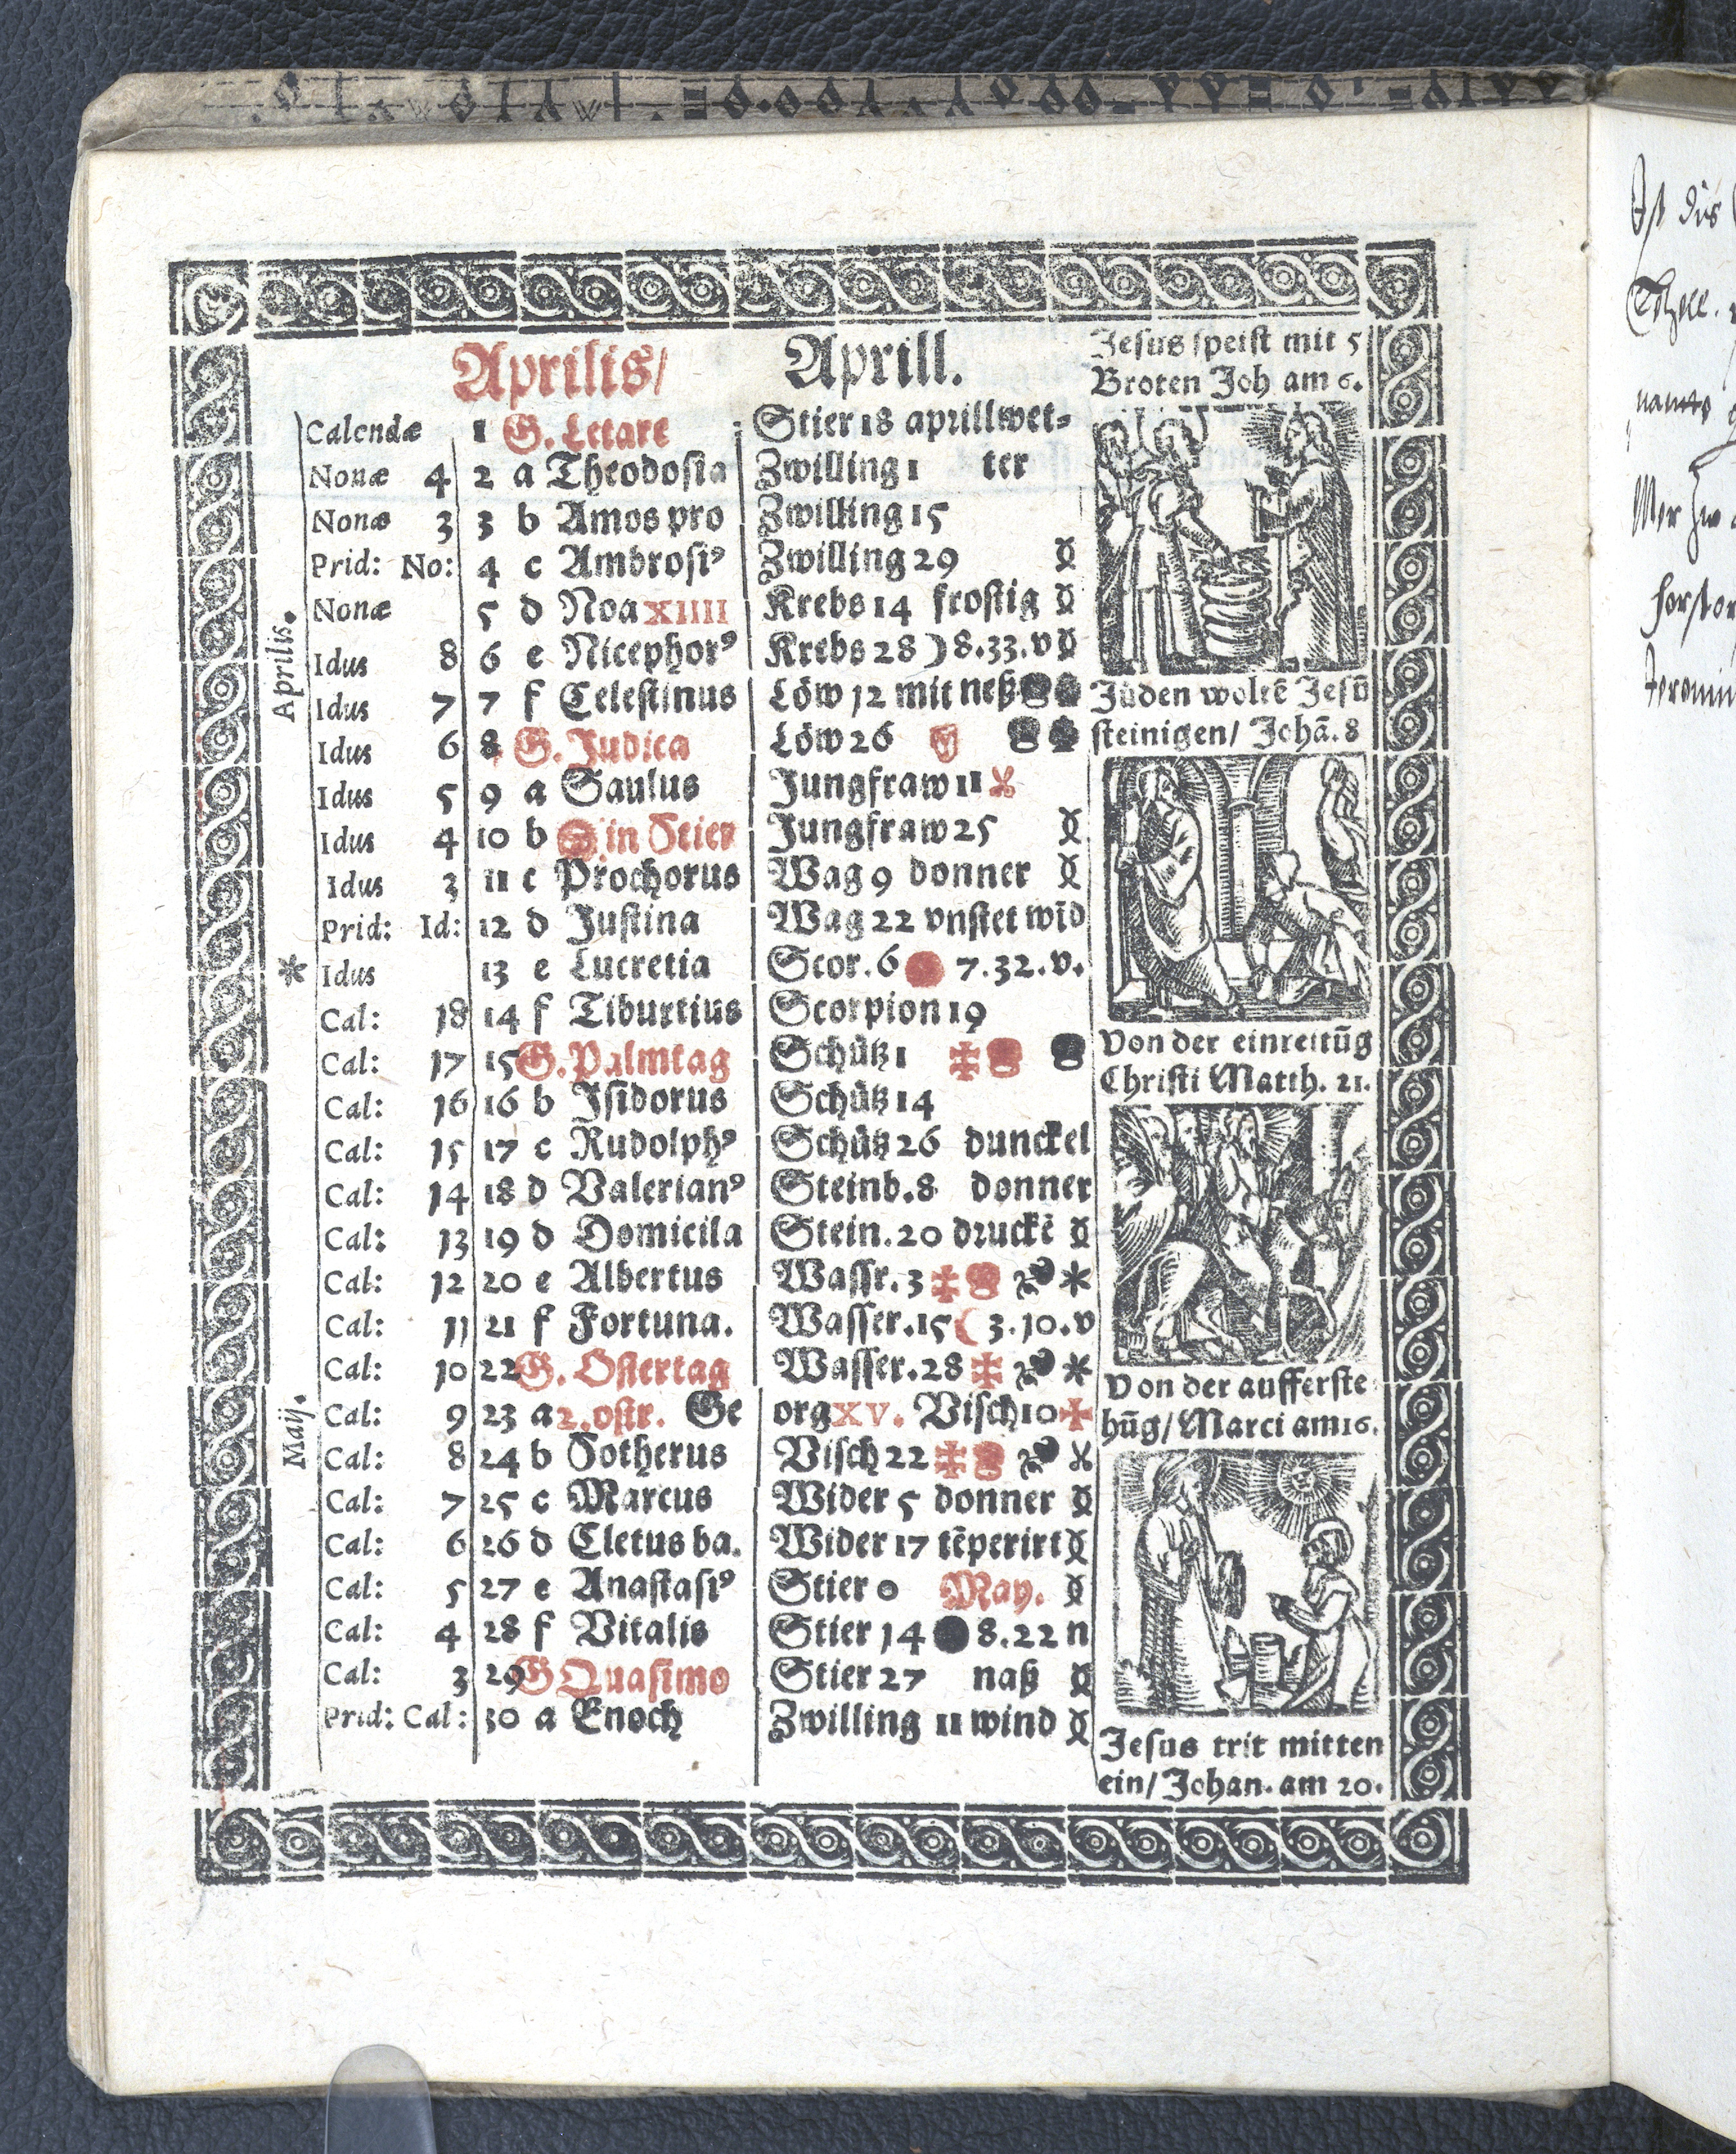 Aprilis/ Aprill.
Calendæ 1 G. Letare Stier 18 aprillwet=
Nonæ 4 2 a Theodosia Zwilling 1 ter
Nonæ 3 3 b Amos pro Zwilling 15
Prid: No: 4 c Ambrosiꝰ Zwilling 29
Nonæ 5 d Noa XIIII Krebs 14 frostig
Idus 8 6 e Nicephorꝰ Krebs 28 ☽ 8.33.v
Idus 7 7 f Celestinus Löw 12 mit neß
Idus 6 8 G. Judica Löw 26
Idus 5 9 a Saulus Jungfraw 11
Idus 4 10 b ☉ in Stier Jungfraw 25
Idus 3 11 c Prochorus Wag 9 donner
Prid: Id: 12 d Justina Wag 22 vnstet wid
* Idus 13 e Lucretia Scor. 6 7.32.v.
Cal: 18 14 f Tiburtius Scorpion 19
Cal: 17 15 G. Palmtag Schütz 1
Cal: 16 16 b Isidorus Schütz 14
Cal: 15 17 c Rudolphꝰ Schütz 26 dunckel
Cal: 14 18 d Valerianꝰ Steinb. 8 donner
Cal: 13 19 d Domicila Stein. 20 druckē
Cal: 12 20 e Albertus Wassr. 3 *
Cal: 11 21 f Fortuna. Wasser. 15 ☾ 3.10.v
Cal: 10 22 G. Ostertag Wasser. 28 *
Cal: 9 23 a 2. ostr. Ge org XV. Visch 10
Cal: 8 24 b Sotherus Visch 22
Cal: 7 25 c Marcus Wider 5 donner
Cal: 6 26 d Cletus ba. Wider 17 tēperirt
Cal: 5 27 e Anastasiꝰ Stier 0 May.
Cal: 4 28 f Vitalis Stier 14 8.22 n
Cal: 3 29 G Quasimo Stier 27 naß
Prid: Cal: 30 a Enoch Zwilling 11 wind
Aprilis.
Maij.
Jesus speist mit 5
Broten Joh am 6.
Jüden woltē Jesū
steinigen/ Johā. 8
Von der einreitūg
Christi Matth. 21.
Von der aufferste
hūg/ Marci am 16.
Jesus trit mitten
ein/ Johan. am 20.